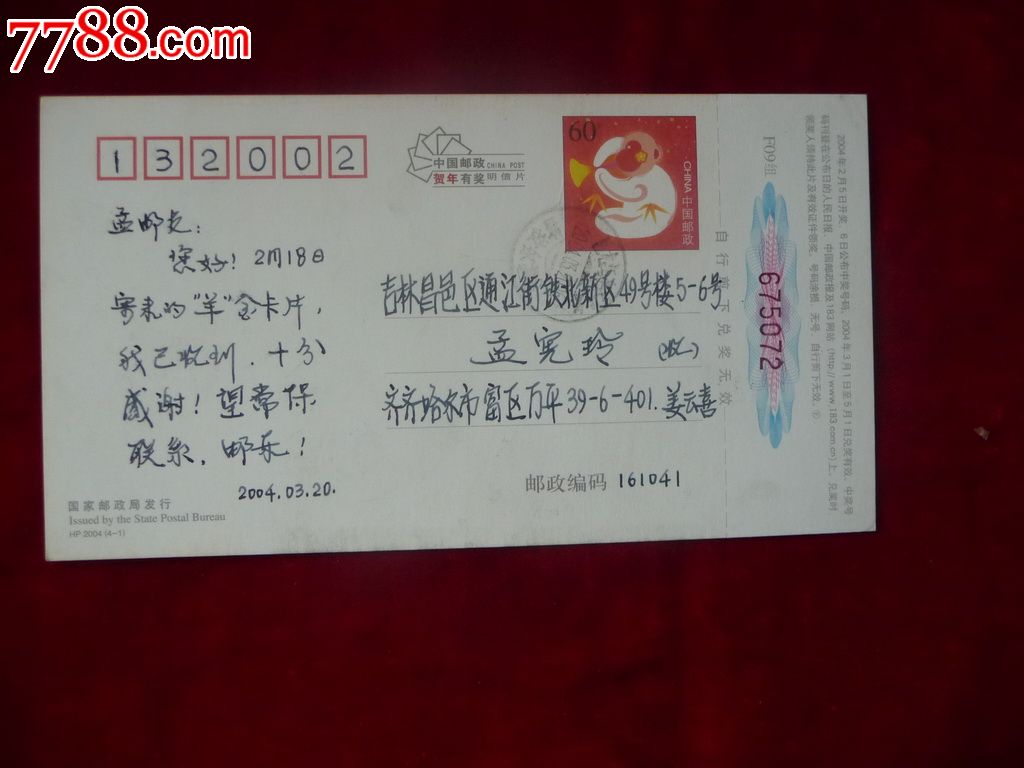 7788.com
132002
中国邮政 CHINA POST
贺年有奖 明信片
60
CHINA 中国邮政
孟邮友:
您好! 2月18日
寄来的"羊"全卡片,
我已收到. 十分
感谢! 望常保
联系. 邮乐!
2004.03.20.
吉林昌邑区通江街铁北新区49号楼5-6号
孟宪玲 (收)
齐齐哈尔市富区万平39-6-401. 姜云喜
邮政编码 161041
国家邮政局发行
Issued by the State Postal Bureau
HP 2004 (4-1)
自行剪下兑奖无效
F09组
675072
2004年2月5日开奖,6日公布中奖号码,2004年3月1日至5月1日兑奖有效。中奖号
码刊登在公布日的人民日报、中国邮政报及183网站(http://www.183.com.cn)上。兑奖时
领奖人须持此片及有效证件领奖。号码涂损、无号、自行剪下无效。①